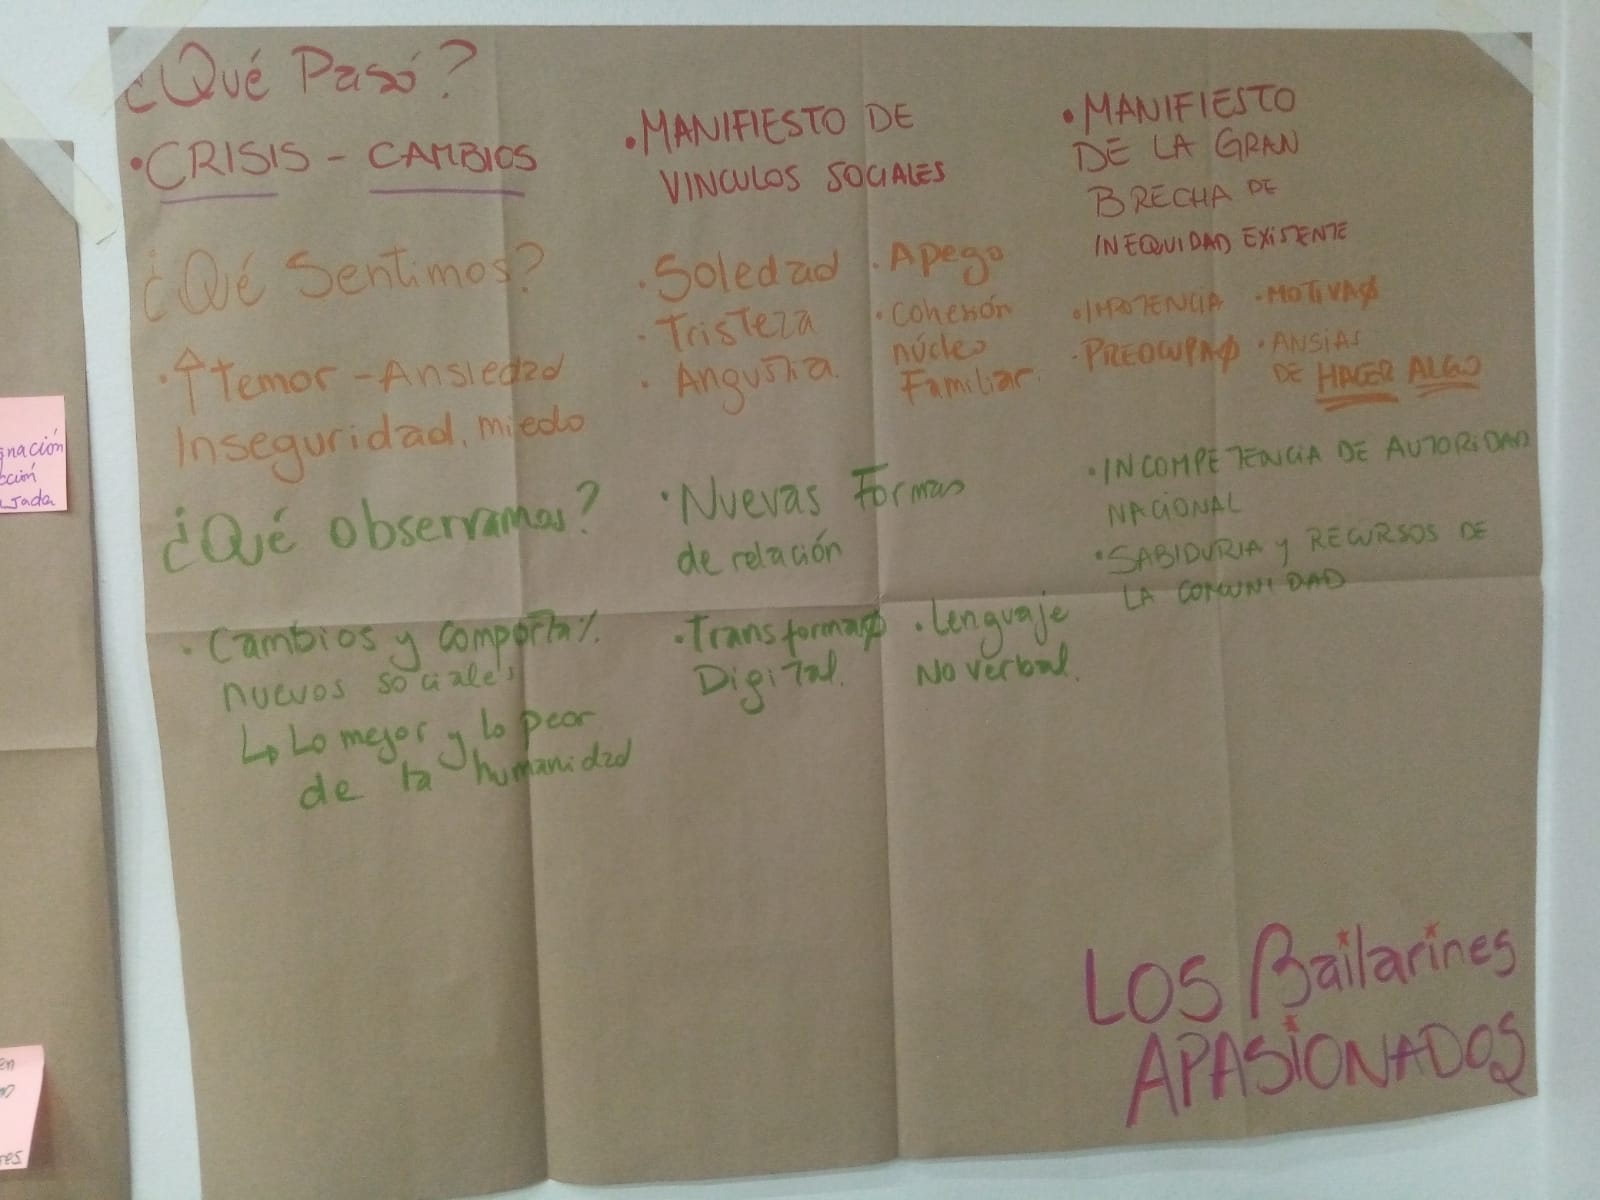 ¿Qué Pasó?
• CRISIS - CAMBIOS
• MANIFIESTO DE
VINCULOS SOCIALES
• MANIFIESTO
DE LA GRAN
BRECHA DE
INEQUIDAD EXISTENTE
¿Qué Sentimos?
• ↑ temor - Ansiedad
Inseguridad, miedo
• Soledad
• Tristeza
• Angustia.
• Apego
• Cohesión
núcleo
Familiar.
• IMPOTENCIA
• PREOCUPAØ
• MOTIVAØ
• ANSIAS
DE HACER ALGO
¿Qué observamos?
• Cambios y comporta%.
nuevos sociales
↳ Lo mejor y lo peor
de la humanidad
• Nuevas Formas
de relación
• TransformaØ
Digital.
• Lenguaje
No verbal.
• INCOMPETENCIA DE AUTORIDAD
NACIONAL
• SABIDURIA y RECURSOS DE
LA COMUNIDAD
LOS Bailarines
APASIONADOS
nación
cción
Jada
en
res